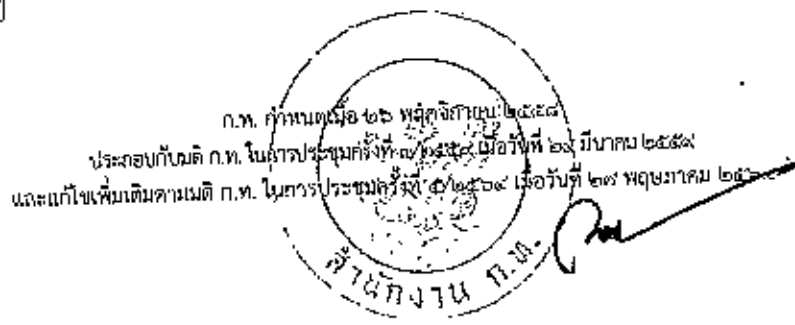 ก.ท. กำหนดเมื่อ ๒๖ พฤศจิกายน ๒๕๕๘
ประกอบกับมติ ก.ท. ในการประชุมครั้งที่ เมื่อวันที่ มีนาคม ๒๕๕๙
และแก้ไขเพิ่มเติมตามมติ ก.ท. ในการประชุมครั้งที่ ๕/๒๕๖๔ เมื่อวันที่ ๒๗ พฤษภาคม
สำนักงาน ก.ท.